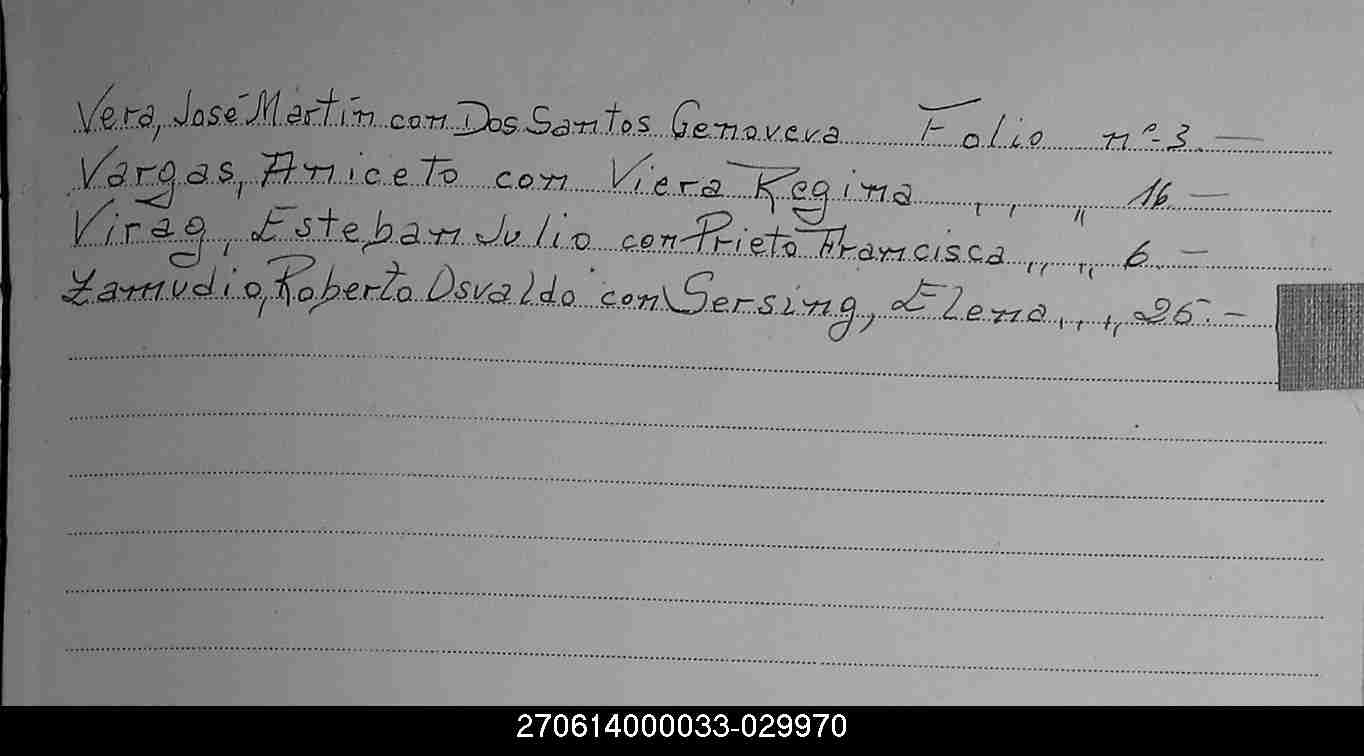 Vera, José Martín con Dos Santos Genoveva Folio nº 3.—
Vargas, Aniceto con Viera Regina , , „ 16 —
Virág, Esteban Julio con Prieto Francisca „ „ 6. —
Zamudio, Roberto Osvaldo con Sersing, Elena , , „ 25. —
270614000033-029970